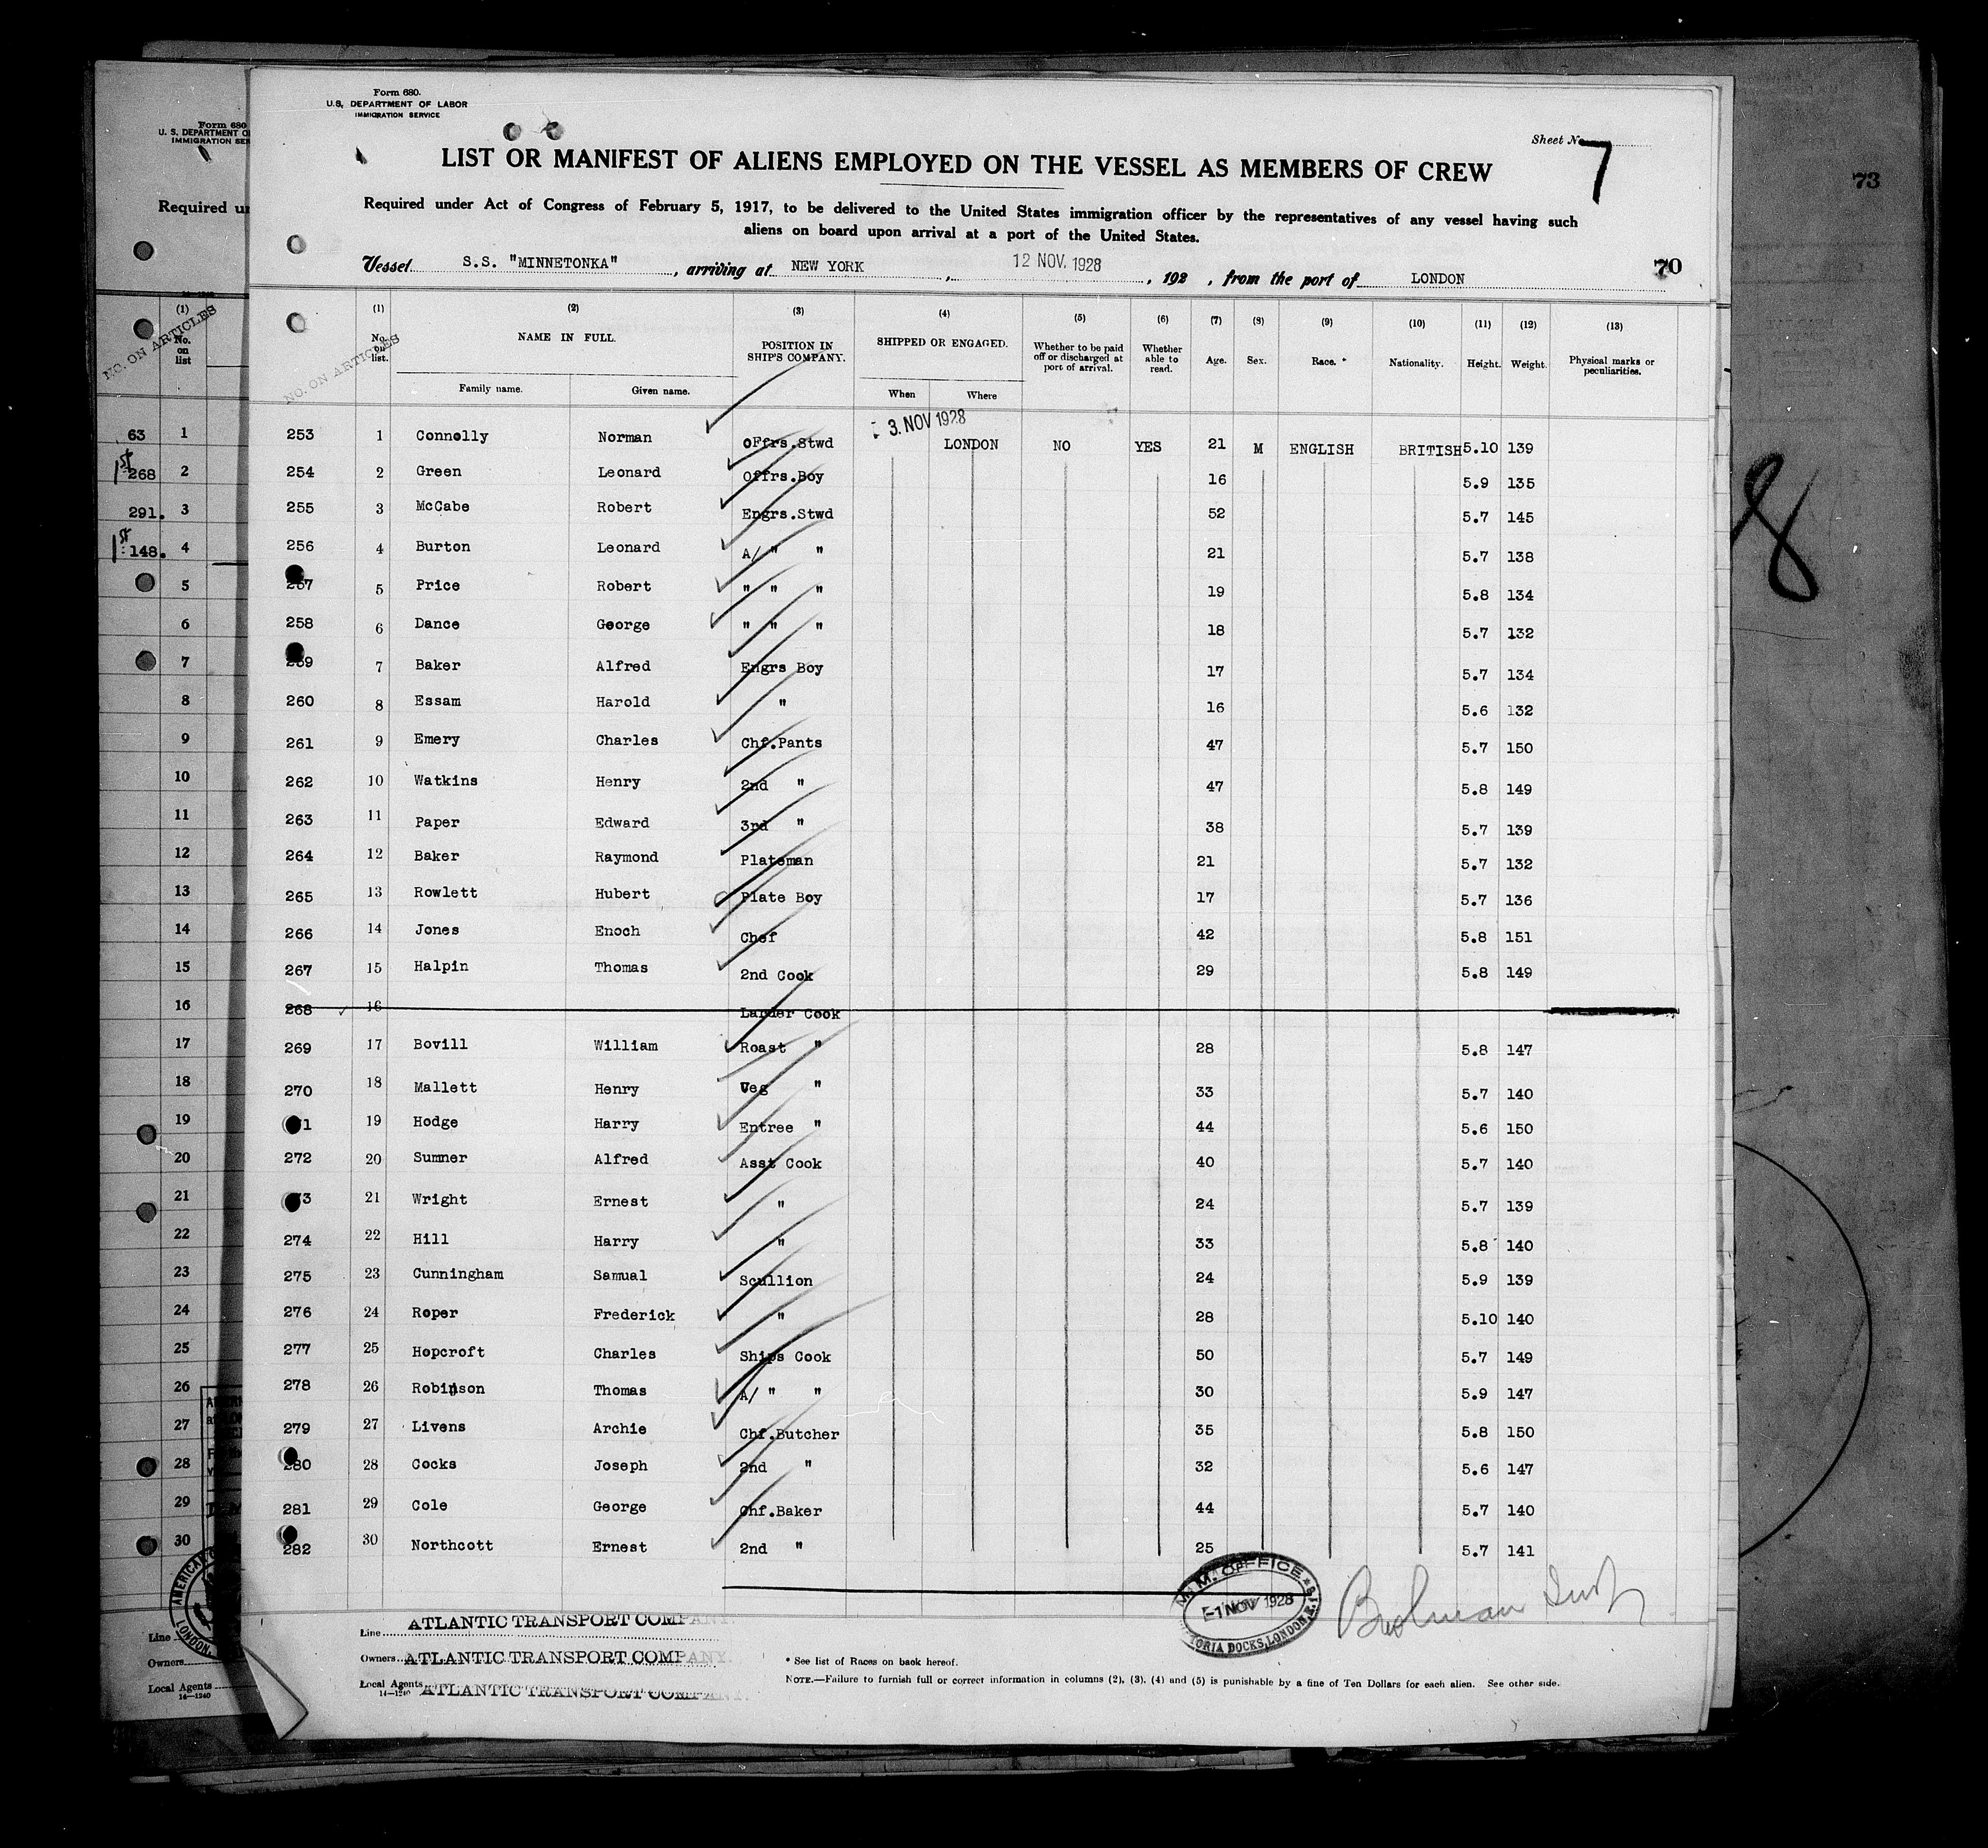 Form 680.
U.S. DEPARTMENT OF LABOR
IMMIGRATION SERVICE
Sheet No. 7
LIST OR MANIFEST OF ALIENS EMPLOYED ON THE VESSEL AS MEMBERS OF CREW
Required under Act of Congress of February 5, 1917, to be delivered to the United States immigration officer by the representatives of any vessel having such
aliens on board upon arrival at a port of the United States.
70
Vessel S.S. "MINNETONKA", arriving at NEW YORK, 12 NOV. 1928, 192 , from the port of LONDON
NO. ON ARTICLES
(1) (2) (3) (4) (5) (6) (7) (8) (9) (10) (11) (12) (13)
No. on list. NAME IN FULL. POSITION IN SHIP'S COMPANY. SHIPPED OR ENGAGED. Whether to be paid off or discharged at port of arrival. Whether able to read. Age. Sex. Race.* Nationality. Height. Weight. Physical marks or peculiarities.
Family name. Given name. When Where
3. NOV 1928
253 1 Connolly Norman Offrs.Stwd LONDON NO YES 21 M ENGLISH BRITISH 5.10 139
254 2 Green Leonard Offrs.Boy 16 5.9 135
255 3 McCabe Robert Engrs.Stwd 52 5.7 145
256 4 Burton Leonard A/ " " 21 5.7 138
257 5 Price Robert " " " 19 5.8 134
258 6 Dance George " " " 18 5.7 132
259 7 Baker Alfred Engrs Boy 17 5.7 134
260 8 Essam Harold " 16 5.6 132
261 9 Emery Charles Chf.Pants 47 5.7 150
262 10 Watkins Henry 2nd " 47 5.8 149
263 11 Paper Edward 3rd " 38 5.7 139
264 12 Baker Raymond Plateman 21 5.7 132
265 13 Rowlett Hubert Plate Boy 17 5.7 136
266 14 Jones Enoch Chef 42 5.8 151
267 15 Halpin Thomas 2nd Cook 29 5.8 149
268 16 Larder Cook
269 17 Bovill William Roast " 28 5.8 147
270 18 Mallett Henry Veg " 33 5.7 140
1 19 Hodge Harry Entree " 44 5.6 150
272 20 Sumner Alfred Asst Cook 40 5.7 140
3 21 Wright Ernest " 24 5.7 139
274 22 Hill Harry " 33 5.8 140
275 23 Cunningham Samual Scullion 24 5.9 139
276 24 Roper Frederick " 28 5.10 140
277 25 Hopcroft Charles Ships Cook 50 5.7 149
278 26 Robinson Thomas A/ " " 30 5.9 147
279 27 Livens Archie Chf.Butcher 35 5.8 150
280 28 Cocks Joseph 2nd " 32 5.6 147
281 29 Cole George Chf.Baker 44 5.7 140
282 30 Northcott Ernest 2nd " 25 5.7 141
M. M. OFFICE
1 NOV 1928
TORIA DOCKS, LONDON, E.1
Line ATLANTIC TRANSPORT COMPANY
Owners ATLANTIC TRANSPORT COMPANY.
Local Agents ATLANTIC TRANSPORT COMPANY.
14—1240
* See list of Races on back hereof.
NOTE.—Failure to furnish full or correct information in columns (2), (3), (4) and (5) is punishable by a fine of Ten Dollars for each alien. See other side.
Form 680
U. S. DEPARTMENT O
IMMIGRATION SER
Required u
NO. ON ARTICLES
(1)
No. on list
63 1
1st 268 2
291. 3
1st 148. 4
5
6
7
8
9
10
11
12
13
14
15
16
17
18
19
20
21
22
23
24
25
26
27
28
29
30
AMERICAN
LONDON
Line
Owners
Local Agents
14—1240
73
8